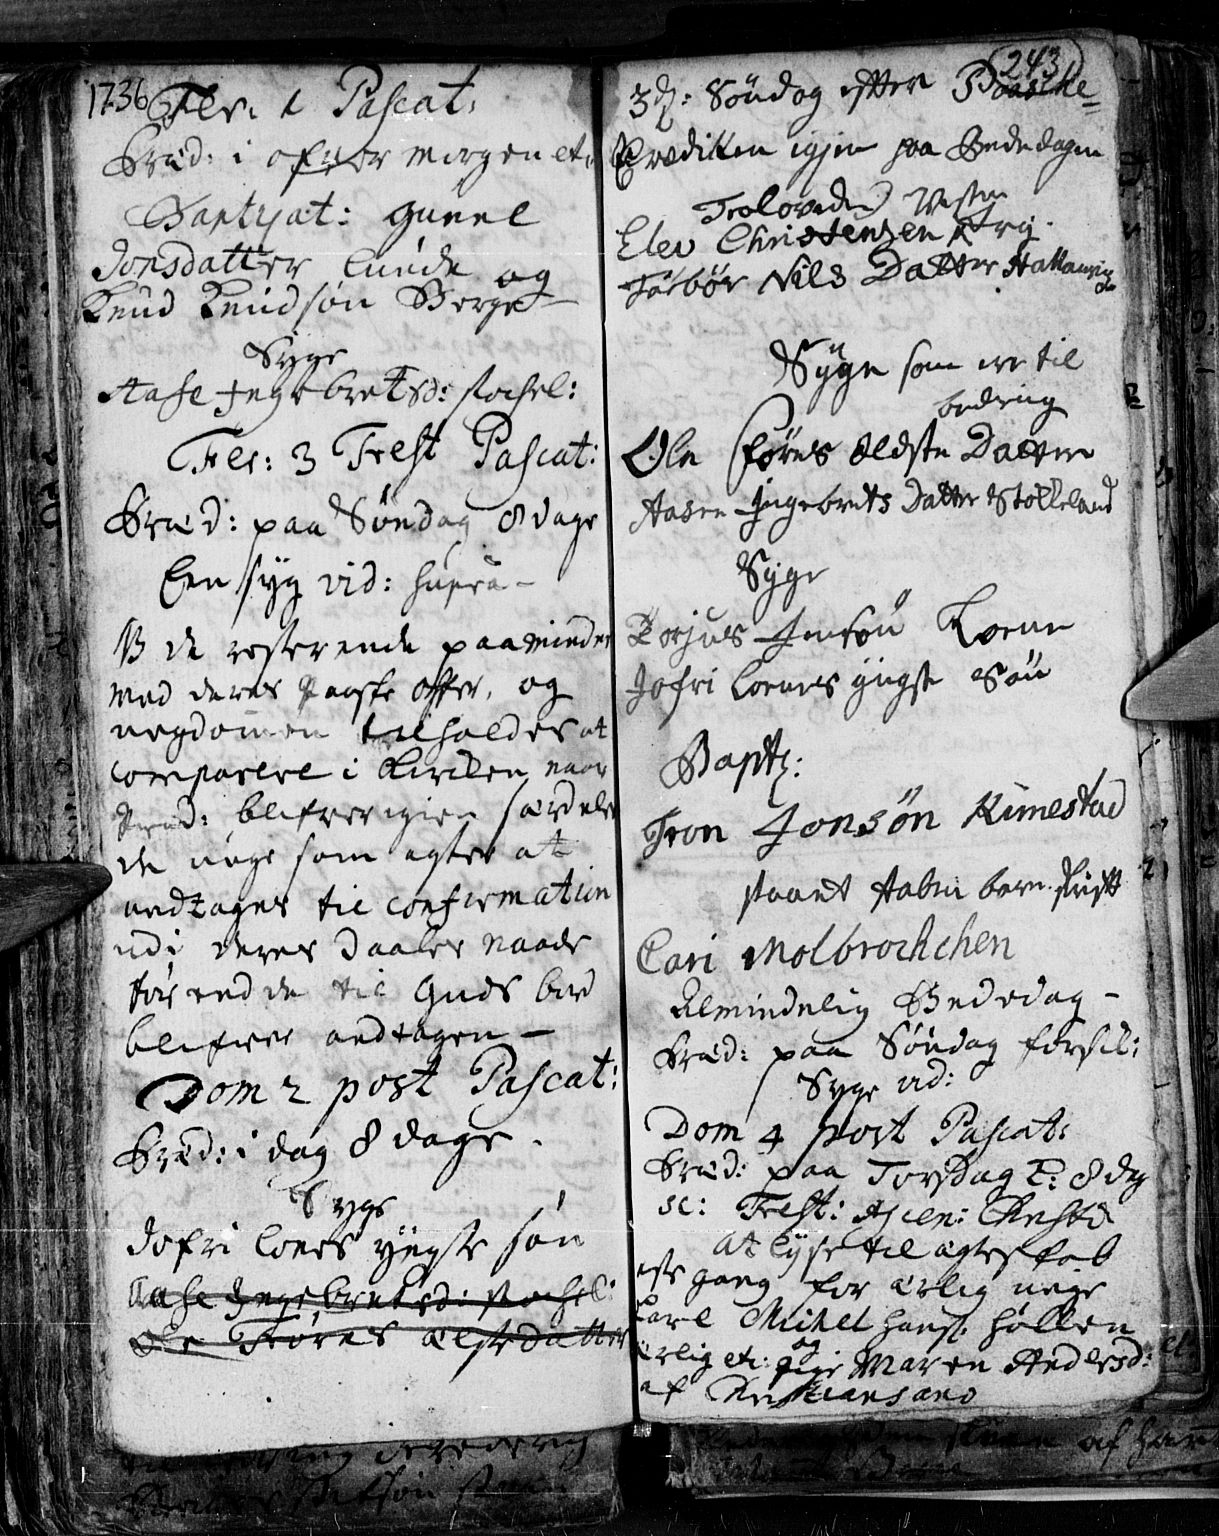 1736
Fer: 1 Pascat:
Præd: i ofver morgen etc
Baptysat: Gunel
Jonsdatter Lunde og
Knud Knudsøn Berge
Syge
Aase Ingebretsd: Stochel:
Fer: 3 Fest Pascat:
Præd: paa Søndag 8 dage
Een syg vid: supra –
NB de resterende paaminder
med deres Paaske offer, og
ungdomen tilholdes at
comparere i Kircken naar
Præd: blifver igien særdeles
de unge som agter at
andtages til confirmation
udi deres Daabes Naade
før end de til Guds bord
blifver andtagen –
Dom 2 post Pascat:
Præd: i dag 8 dage.
Syge
Jofri Loenes yngste søn
Aase Ingebretsd: Stochel:
Ole Førres ælste datter
243
3die Søndag efter Paaske=
Prædiken igjen paa Bededagen
Trolovede Vesten
Elev Christensen Try.
Torbør Nils Datter
Syge som er til
bedring
Ole Førres Ældste Datter
Aasen Ingebrets Datter Stokkeland
Syge
Torjus Jensøn Loene
Jofri Loenes yngste Søn
Baptz:
Tron Jonsøn Rimestad
staaet Aaben bare skrift
Cari Molbrochchen
Almindelig Bededag –
Præd: paa Søndag førstk:
Syge vid:
Dom 4 post Pascat:
Præd: paa Torsdag 8 dag
sc: Fest: Ascen: Christi
At lyse til ægteskab
1ste gang for ærlig unge
Karl Michel Hans: Høllen
og
ærlig etc: pige Maren Andersd:
af Christiansand